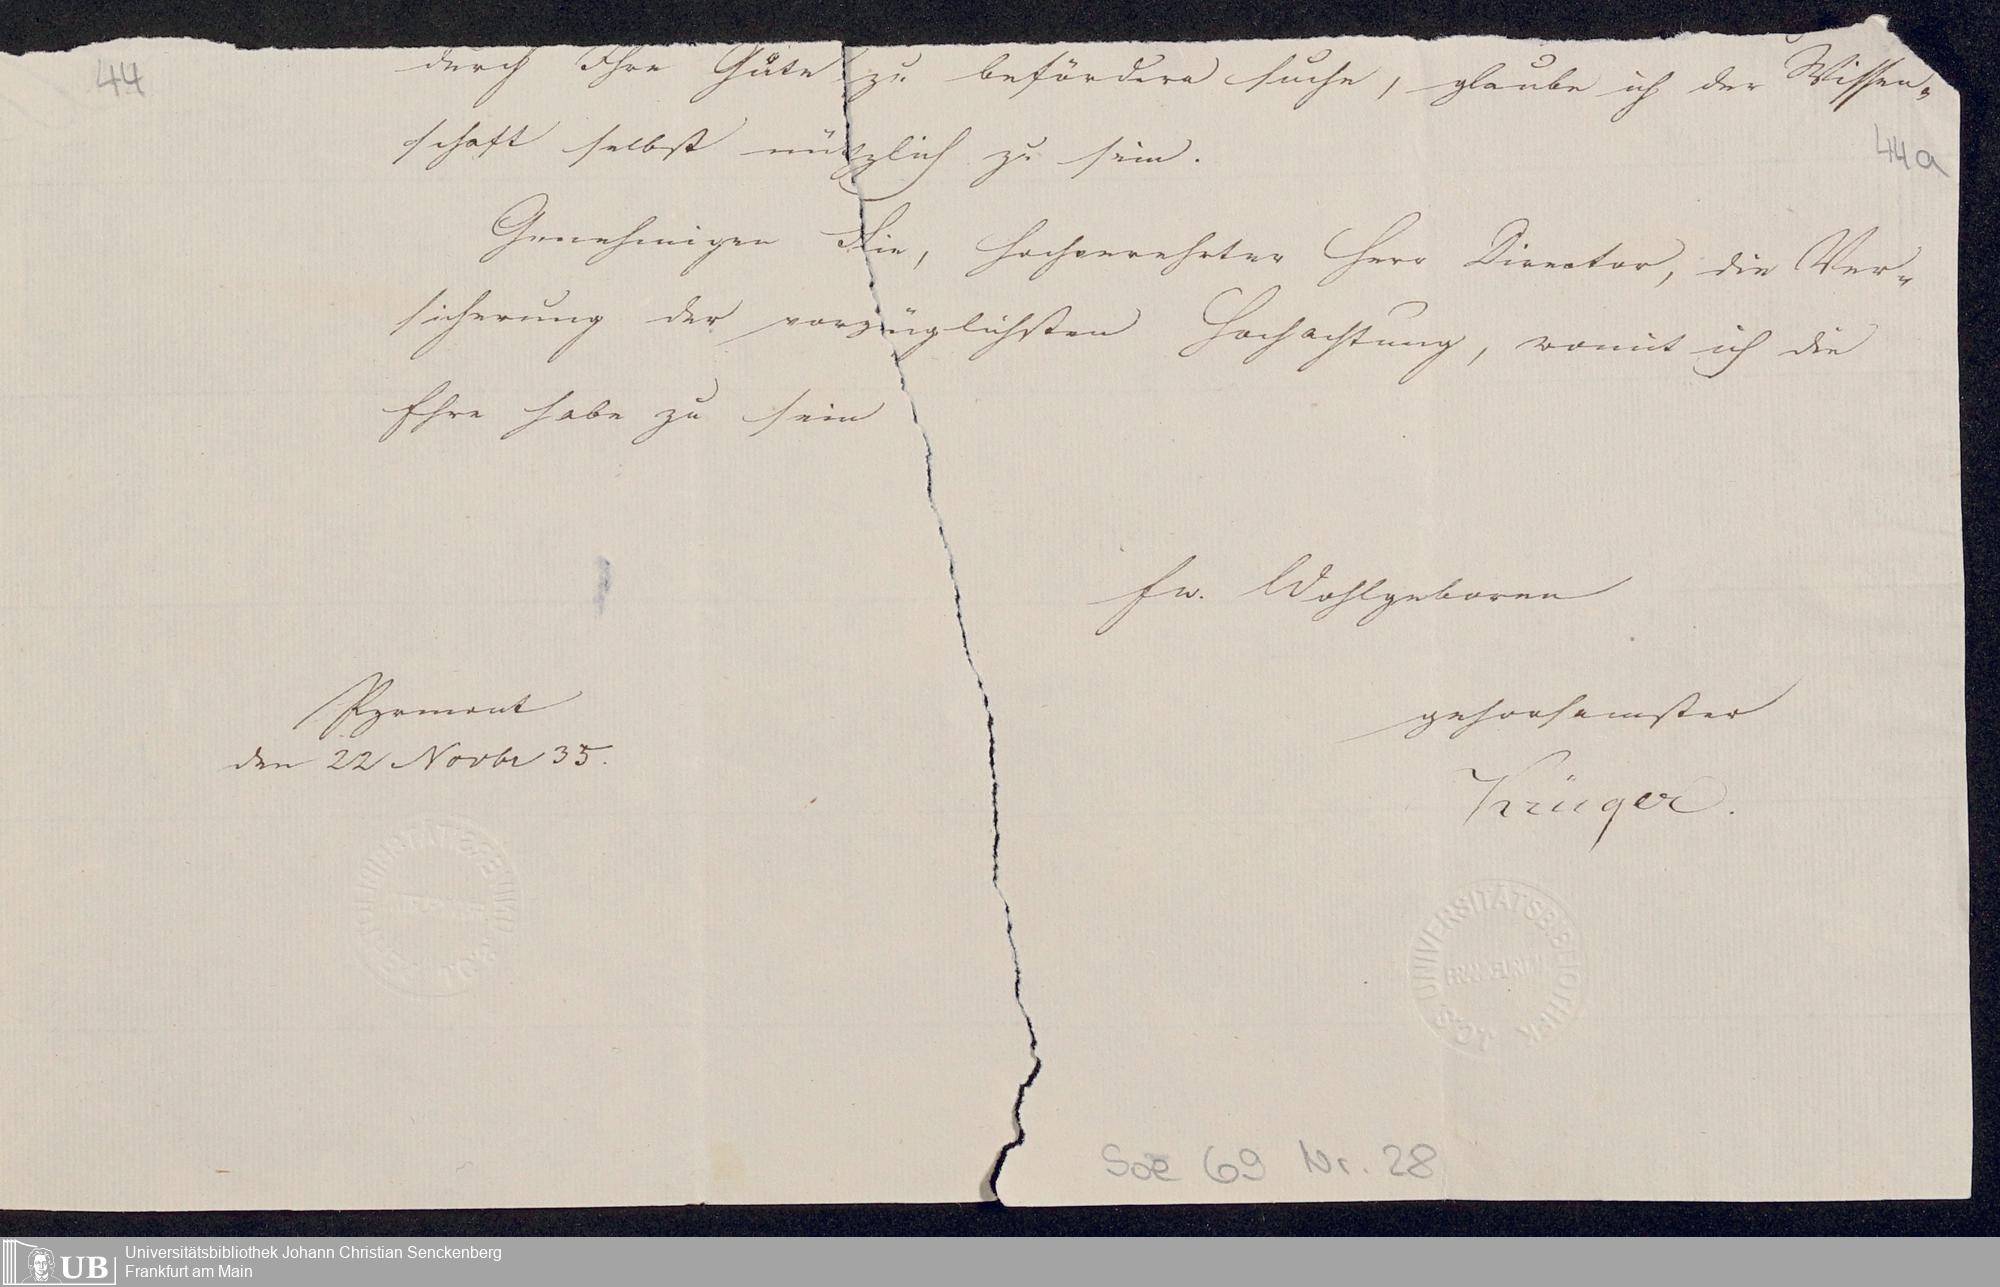 44
durch Ihre Güte zu befördern suche, glaube ich der Wissen-
schaft selbst nützlich zu sein.
44a
Genehmigen Sie, hochverehrter Herr Director, die Ver-
sicherung der vorzüglichsten Hochachtung, womit ich die
Ehre habe zu sein
Ew. Wohlgeboren
Pyrmont
den 22 Novbr 35.
gehorsamster
Krüger.
UNIVERSITÄTSBIBLIOTHEK J.C.S.
FRANKFURT
UNIVERSITÄTSBIBLIOTHEK J.C.S.
FRANKFURT
Soe 69 Nr. 28
UB
Universitätsbibliothek Johann Christian Senckenberg
Frankfurt am Main